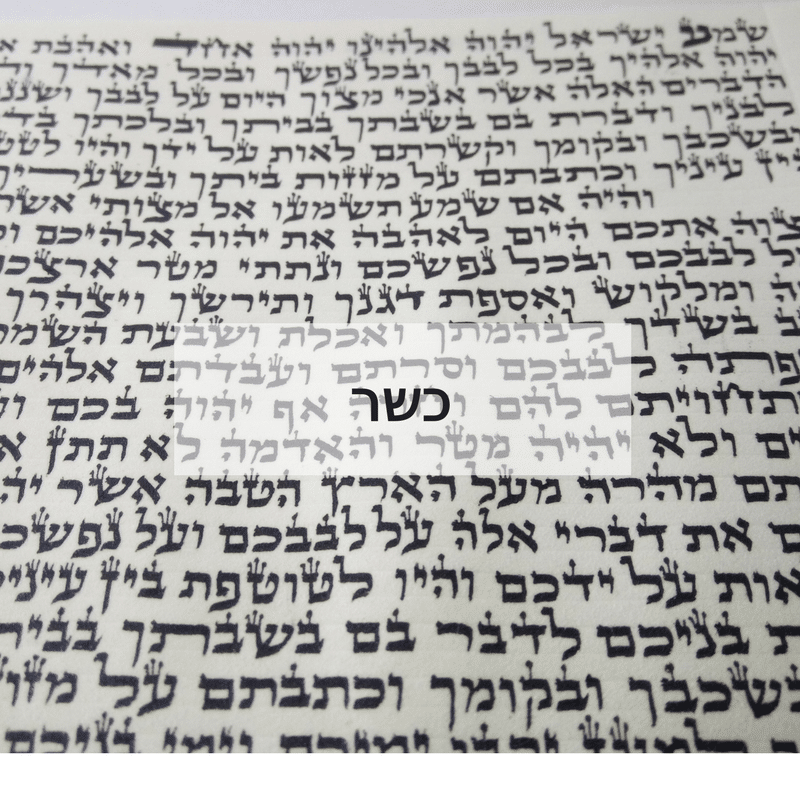 שמע ישראל יהוה אלהינו יהוה אחד ואהבת
יהוה אלהיך בכל לבבך ובכל נפשך ובכל מאדך
הדברים האלה אשר אנכי מצוך היום על לבבך
לבניך ודברת בם בשבתך בביתך ובלכתך
ובשכבך ובקומך וקשרתם לאות על ידך והיו
עיניך וכתבתם על מזזות ביתך
והיה אם שמע תשמעו אל מצותי אשר
אתכם היום לאהבה את יהוה אלהיכם
לבבכם ובכל נפשכם ונתתי מטר
ומלקוש ואספת דגנך ותירשך ויצהרך
בשדך לבהמתך ואכלת ושבעת
לבבכם וסרתם ועבדתם אלהים
להם וחרה אף יהוה בכם
כשר
ולא יהיה מטר והאדמה לא תתן
מהרה מעל הארץ הטבה אשר
את דברי אלה על לבבכם ועל
על ידכם והיו לטוטפת בין
בניכם לדבר בם בשבתך
בשכבך ובקומך וכתבתם על